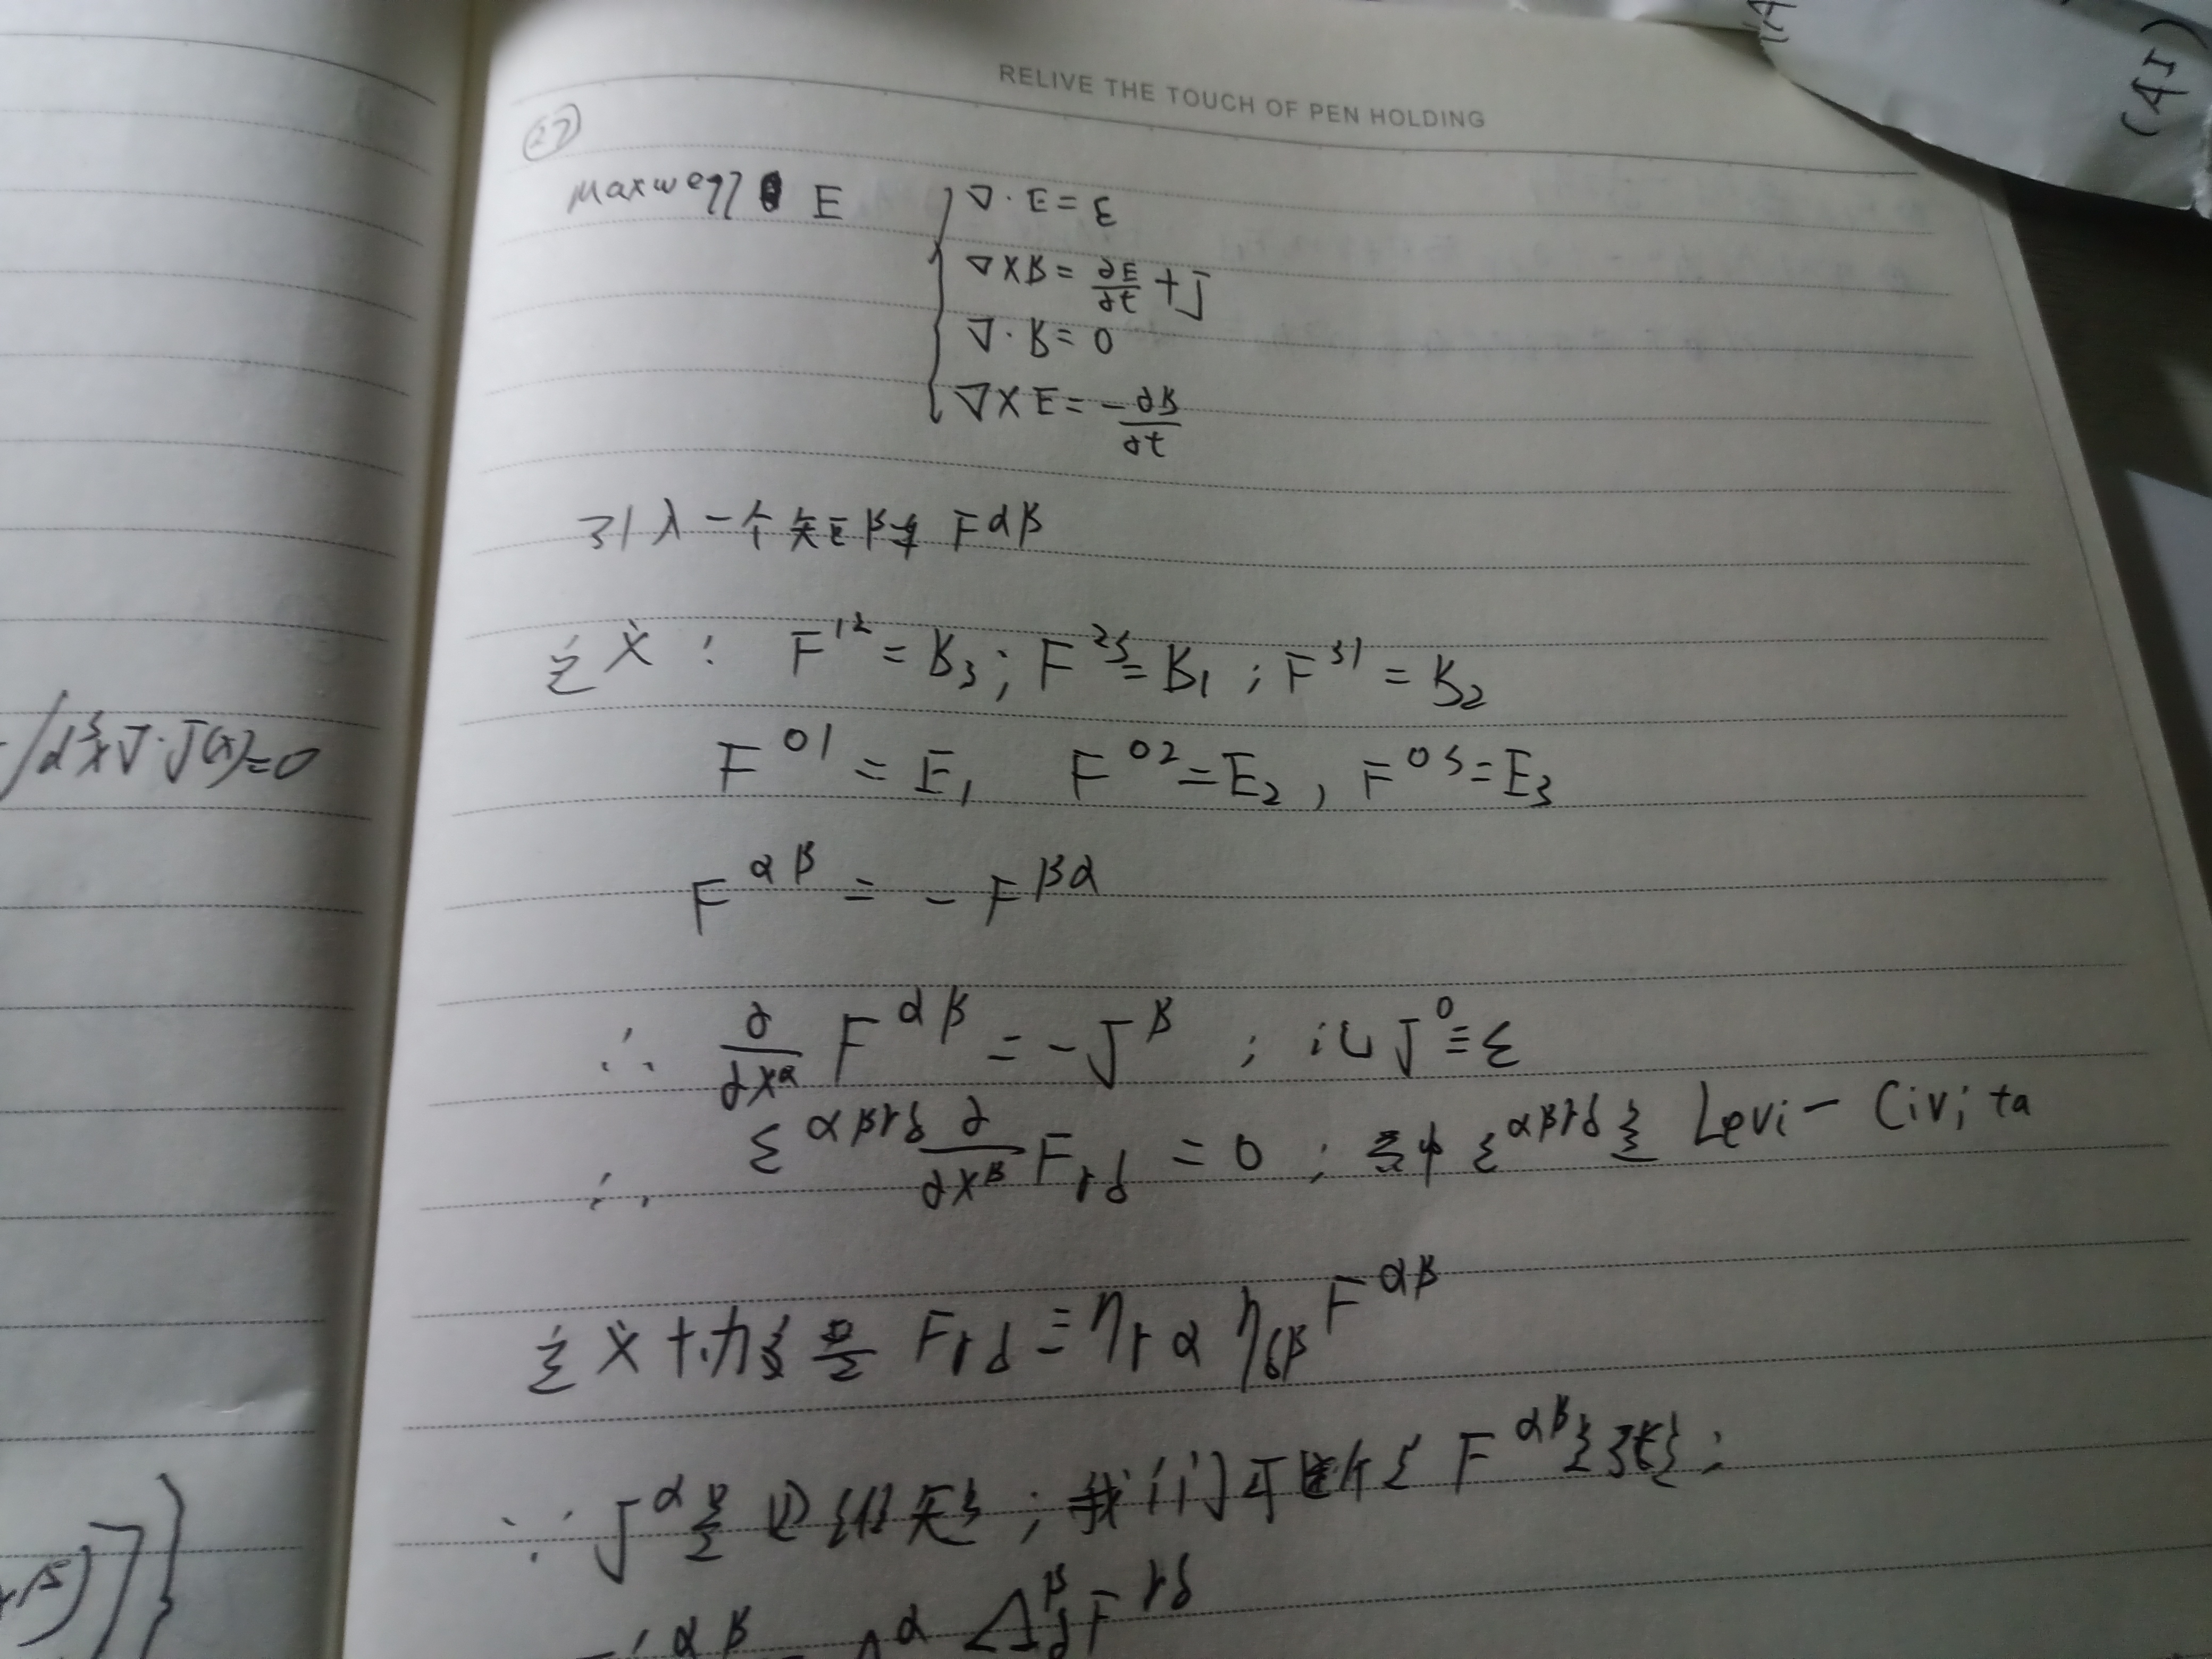 RELIVE THE TOUCH OF PEN HOLDING
(AI)
㉗
Maxwell E
∇·E=ε
∇×B=∂E/∂t+J
∇·B=0
∇×E=-∂B/∂t
引入一个矩阵 F^αβ
定义: F^12=B_3; F^23=B_1; F^31=B_2
F^01=E_1 F^02=E_2, F^03=E_3
F^αβ=-F^βα
∴ ∂/∂x^α F^αβ=-J^β; 记J^0≡ε
∴ ε^αβγδ ∂/∂x^β F_γδ=0; 其中ε^αβγδ是Levi-Civita
定义协变量 F_γδ≡η_γα η_δβ F^αβ
∵ J^α是四维矢; 我们可 F^αβ是张:
F'^αβ Λ^α Λ^β_δ F^γδ
∫d^3x J·J(x)=0